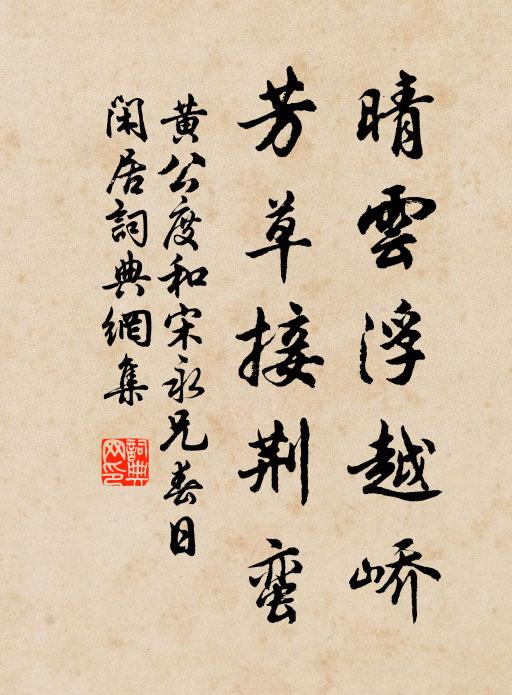 晴雲浮越峤
芳草接荆蛮
黄公度和宋永兄春日
閑居詞典網集
詞典網印